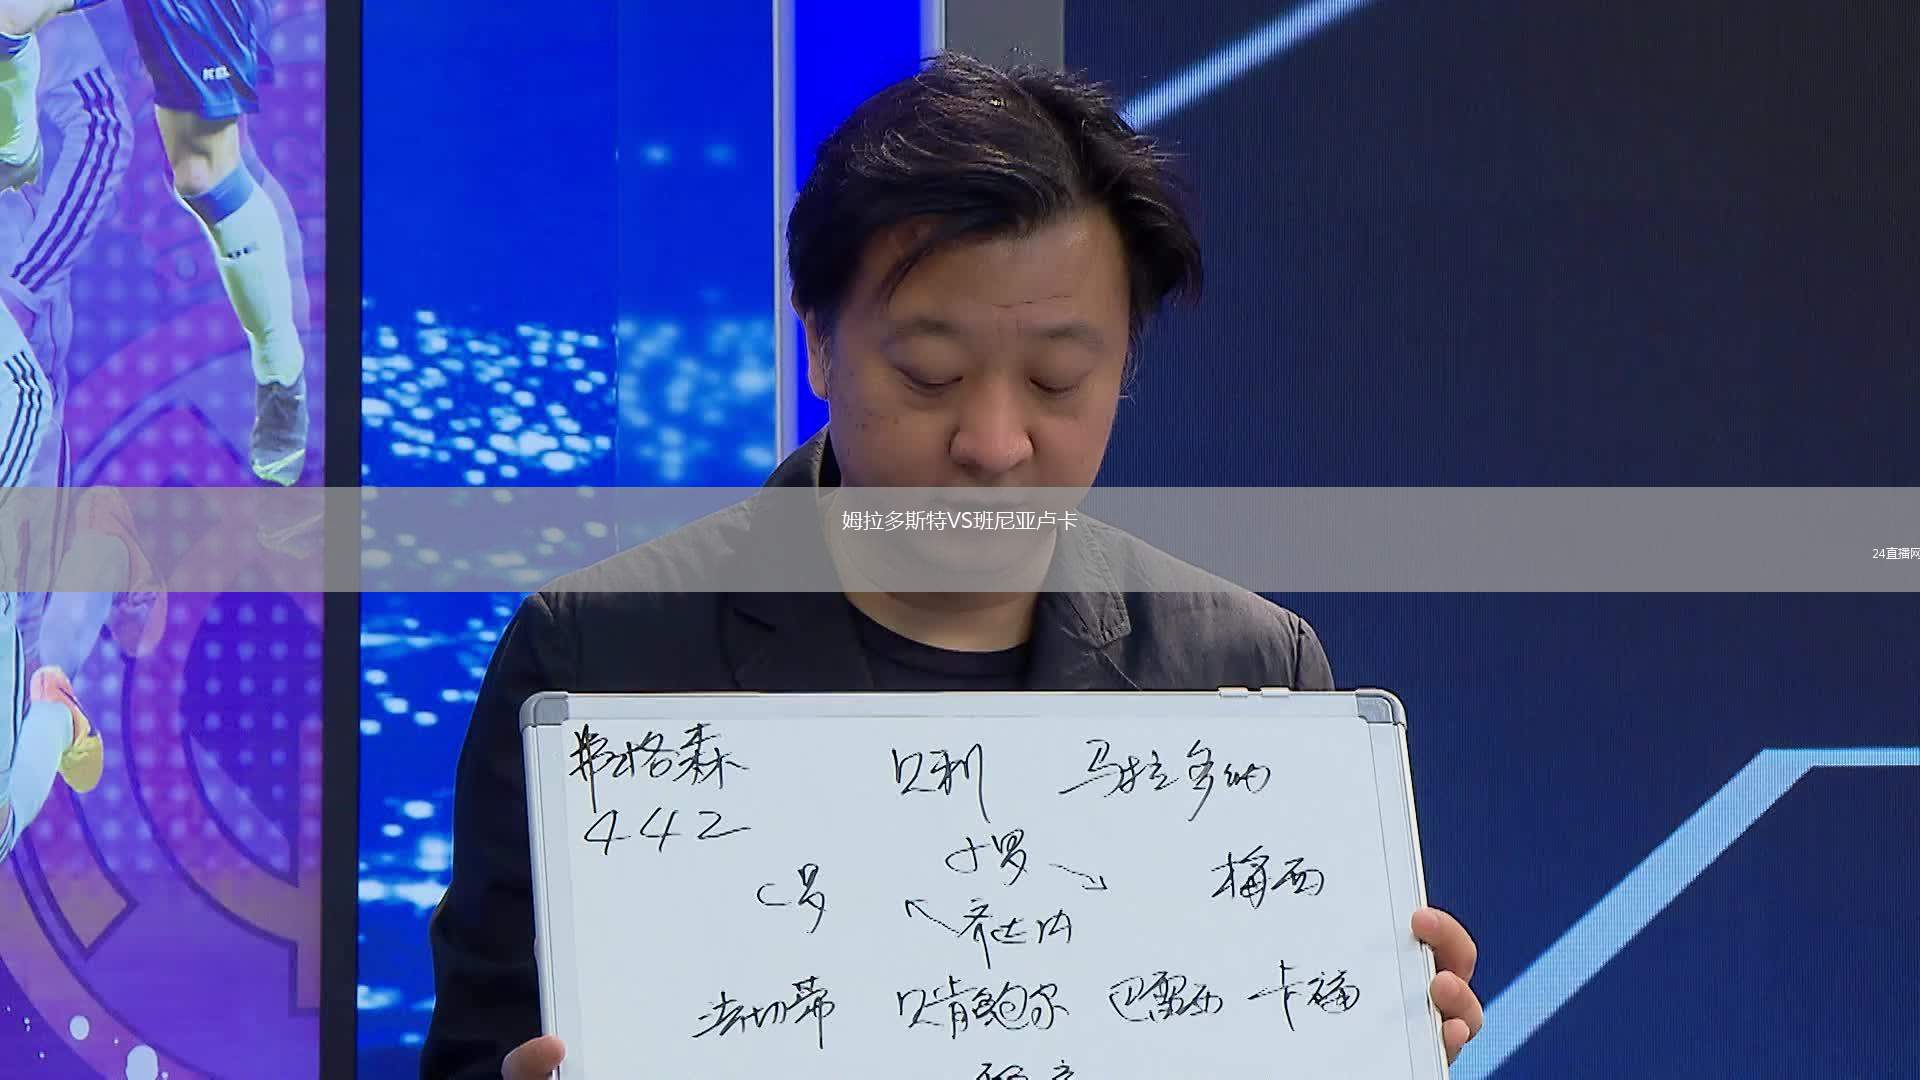 姆拉多斯特VS班尼亚卢卡
24直播网
弗格森 贝利 马拉多纳
442
小罗
C罗 梅西
齐达内
法切蒂 贝肯鲍尔 巴雷西 卡福